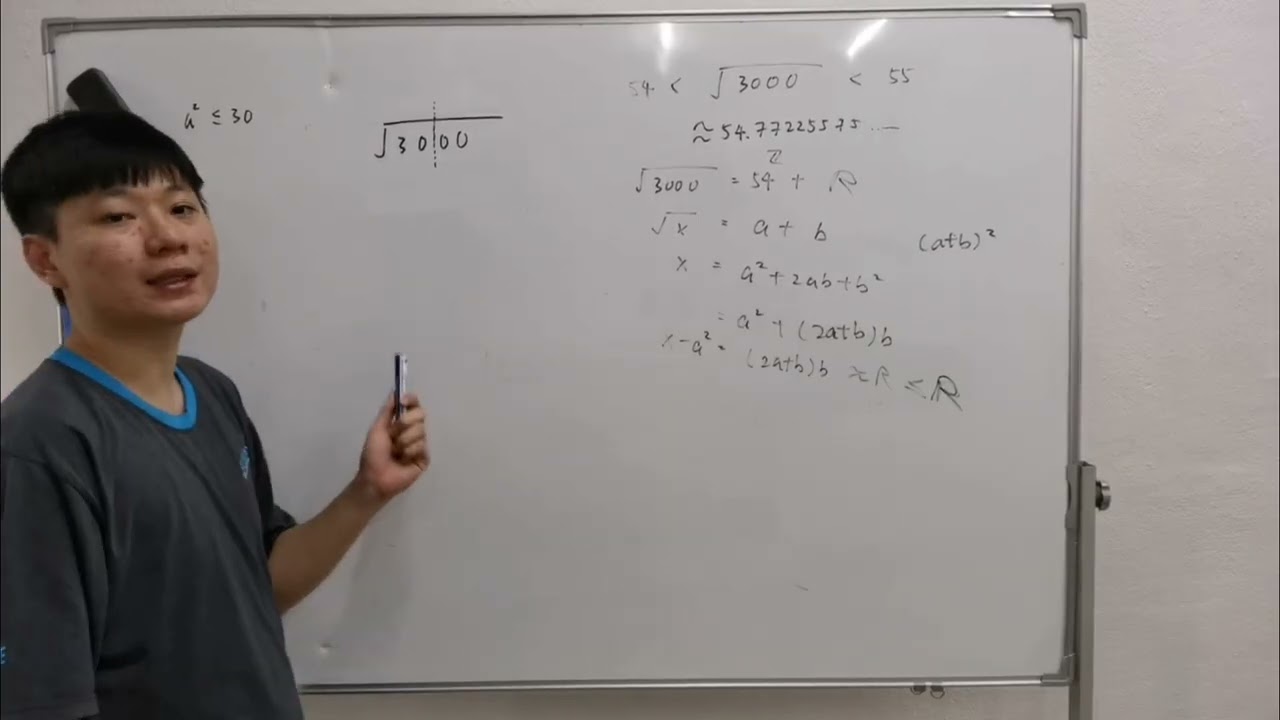 a² ≤ 30
√3000
54 < √3000 < 55
≈ 54.77225575....
ℤ
√3000 = 54 + ℝ
√x = a + b
(a+b)²
x = a² + 2ab + b²
= a² + (2a+b)b
x - a² = (2a+b)b ≈ R ≤ ℝ